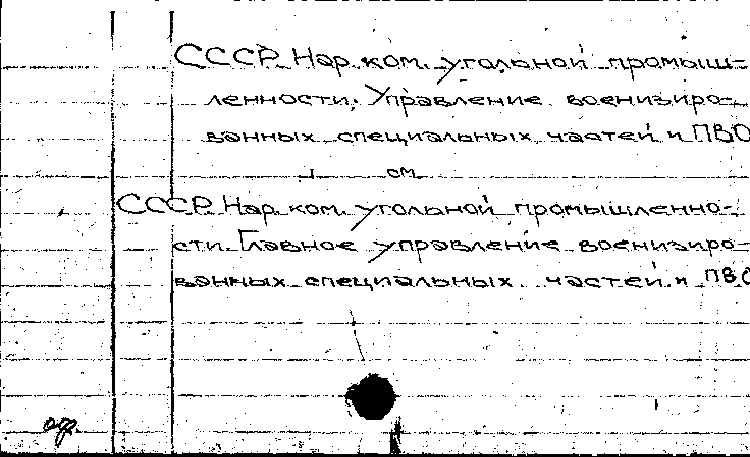 СССР. Нар. ком. угольной промыш-
ленности. Управление военизиро-
ванных специальных частей и ПВО
см.
СССР. Нар. ком. угольной промышленно-
сти. Главное управление военизиро-
ванных специальных частей и ПВО